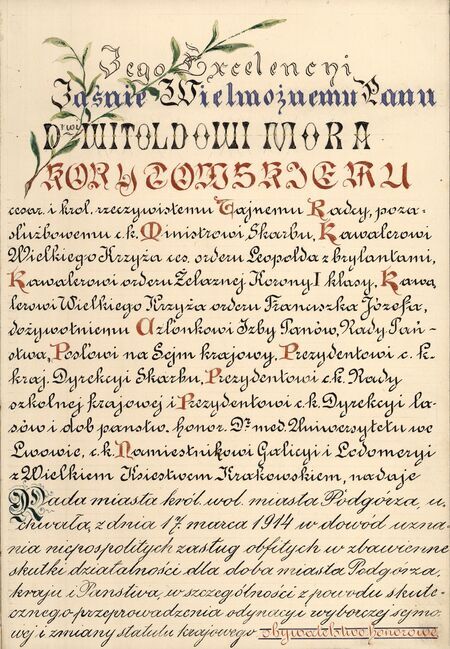 Jego Excelencyi
Jaśnie Wielmożnemu Panu
Drwi WITOLDOWI MORA
KORYTOWSKIEMU
cesar. i król. rzeczywistemu Tajnemu Radcy, poza-
służbowemu c.k. Ministrowi Skarbu, Kawalerowi
Wielkiego Krzyża ces. orderu Leopolda z brylantami,
Kawalerowi orderu Żelaznej Korony I klasy, Kawa
lerowi Wielkiego Krzyża orderu Franciszka Józefa,
dożywotniemu Członkowi Izby Panów, Rady Pań-
stwa, Posłowi na Sejm krajowy, Prezydentowi c.k.
kraj. Dyrekcyi Skarbu, Prezydentowi c.k. Rady
szkolnej krajowej i Prezydentowi c.k. Dyrekcyi la-
sów i dób państw. honor. Dr med. Uniwersytetu we
Lwowie, c.k. Namiestnikowi Galicyi i Lodomeryi
z Wielkiem Księstwem Krakowskiem, nadaje
Rada miasta król. wol. miasta Podgórza, u-
chwałą z dnia 17 marca 1914 w dowód uzna-
nia niepospolitych zasług obfitych w zbawienne
skutki działalności dla doba miasta Podgórza,
kraju i Państwa, w szczególności z powodu skute-
cznego przeprowadzenia odynacyi wyborczej sejmo-
wej i zmiany statutu krajowego obywatelstwo honorowe